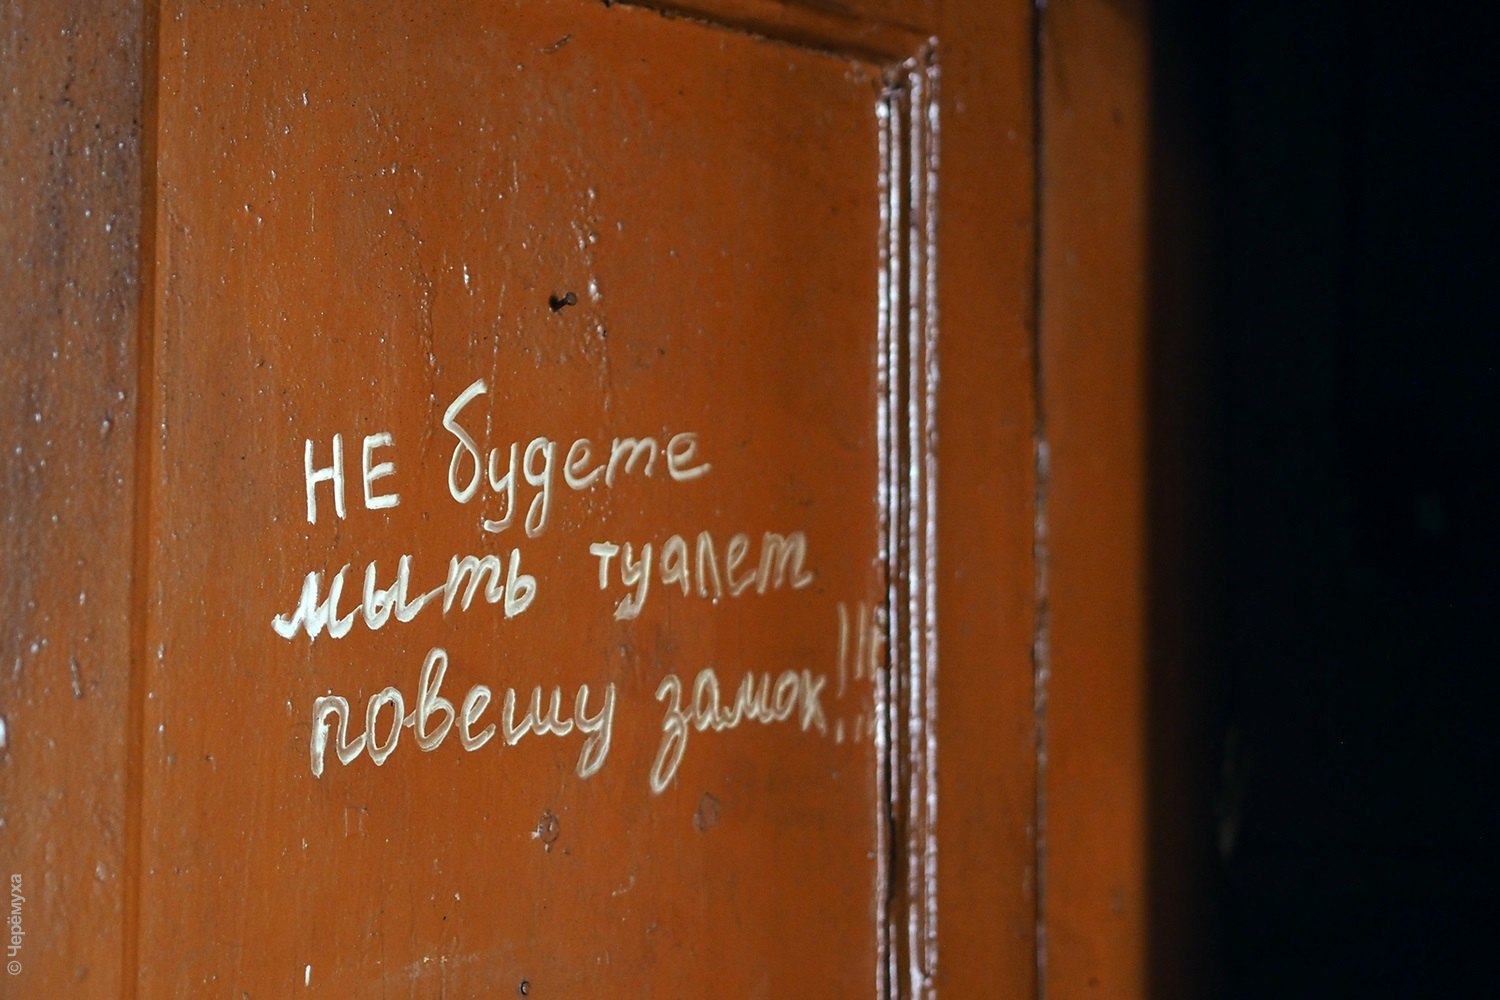 НЕ будете
мыть туалет
повешу замок!!!
© Черёмуха